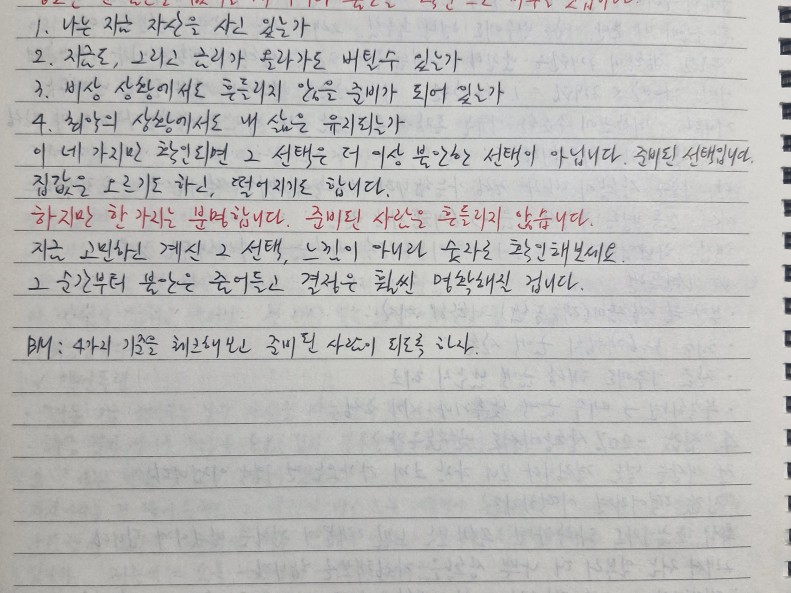 1. 나는 지금 자산을 사고 있는가
2. 지금도, 그리고 금리가 올라가도 버틸수 있는가
3. 비상 상황에서도 흔들리지 않을 준비가 되어 있는가
4. 최악의 상황에서도 내 삶은 유지되는가
이 네 가지만 확인되면 그 선택은 더 이상 불안한 선택이 아닙니다. 준비된 선택입니다.
집값은 오르기도 하고, 떨어지기도 합니다.
하지만 한 가지는 분명합니다. 준비된 사람은 흔들리지 않습니다.
지금 고민하고 계신 그 선택, 느낌이 아니라 숫자로 확인해보세요.
그 순간부터 불안은 줄어들고 결정은 훨씬 명확해질 겁니다.
BM : 4가지 기준을 체크해보고 준비된 사람이 되도록 하자.